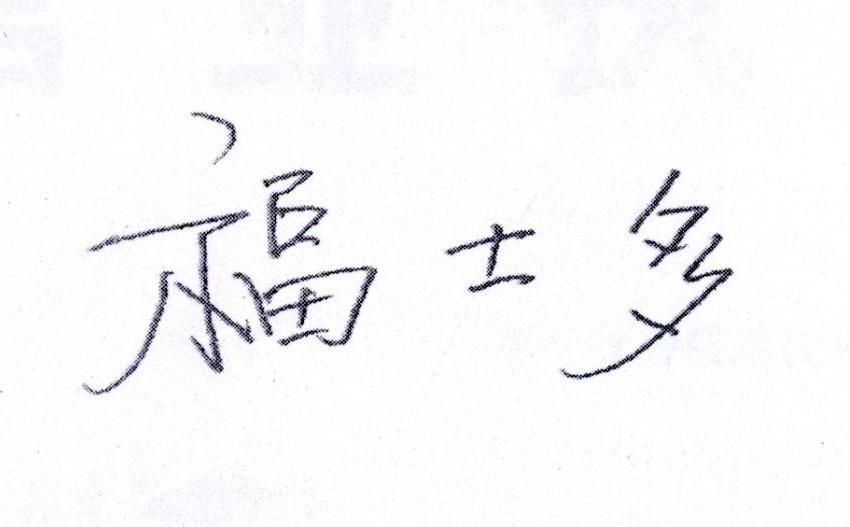 福士多